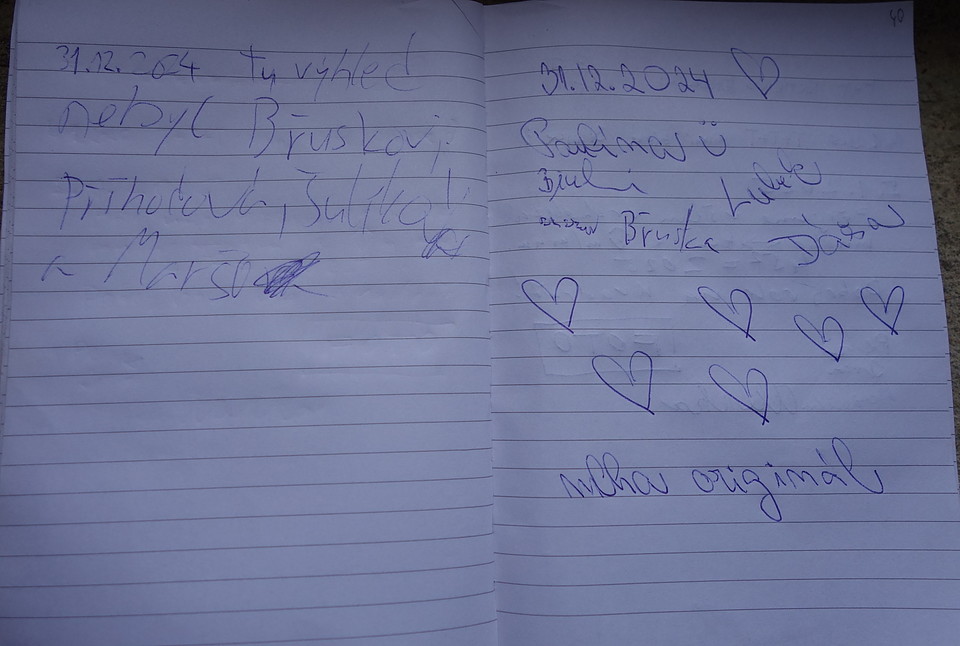 31.12.2024 tu výhled
nebyl Bruskovi,
Příhodová, Šulíko
a Maršo
40
31.12.2024
Paulína ü
Lubek
Bruska Dáša
mlha originál